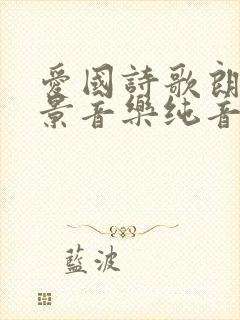 愛國詩歌朗
景音樂纯音
藍波